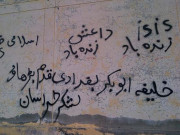 isis داعش اسلامی
زنده باد زنده باد
خلیفه ابوبکر بغدادی قدم بفرما
لشکر خراسان